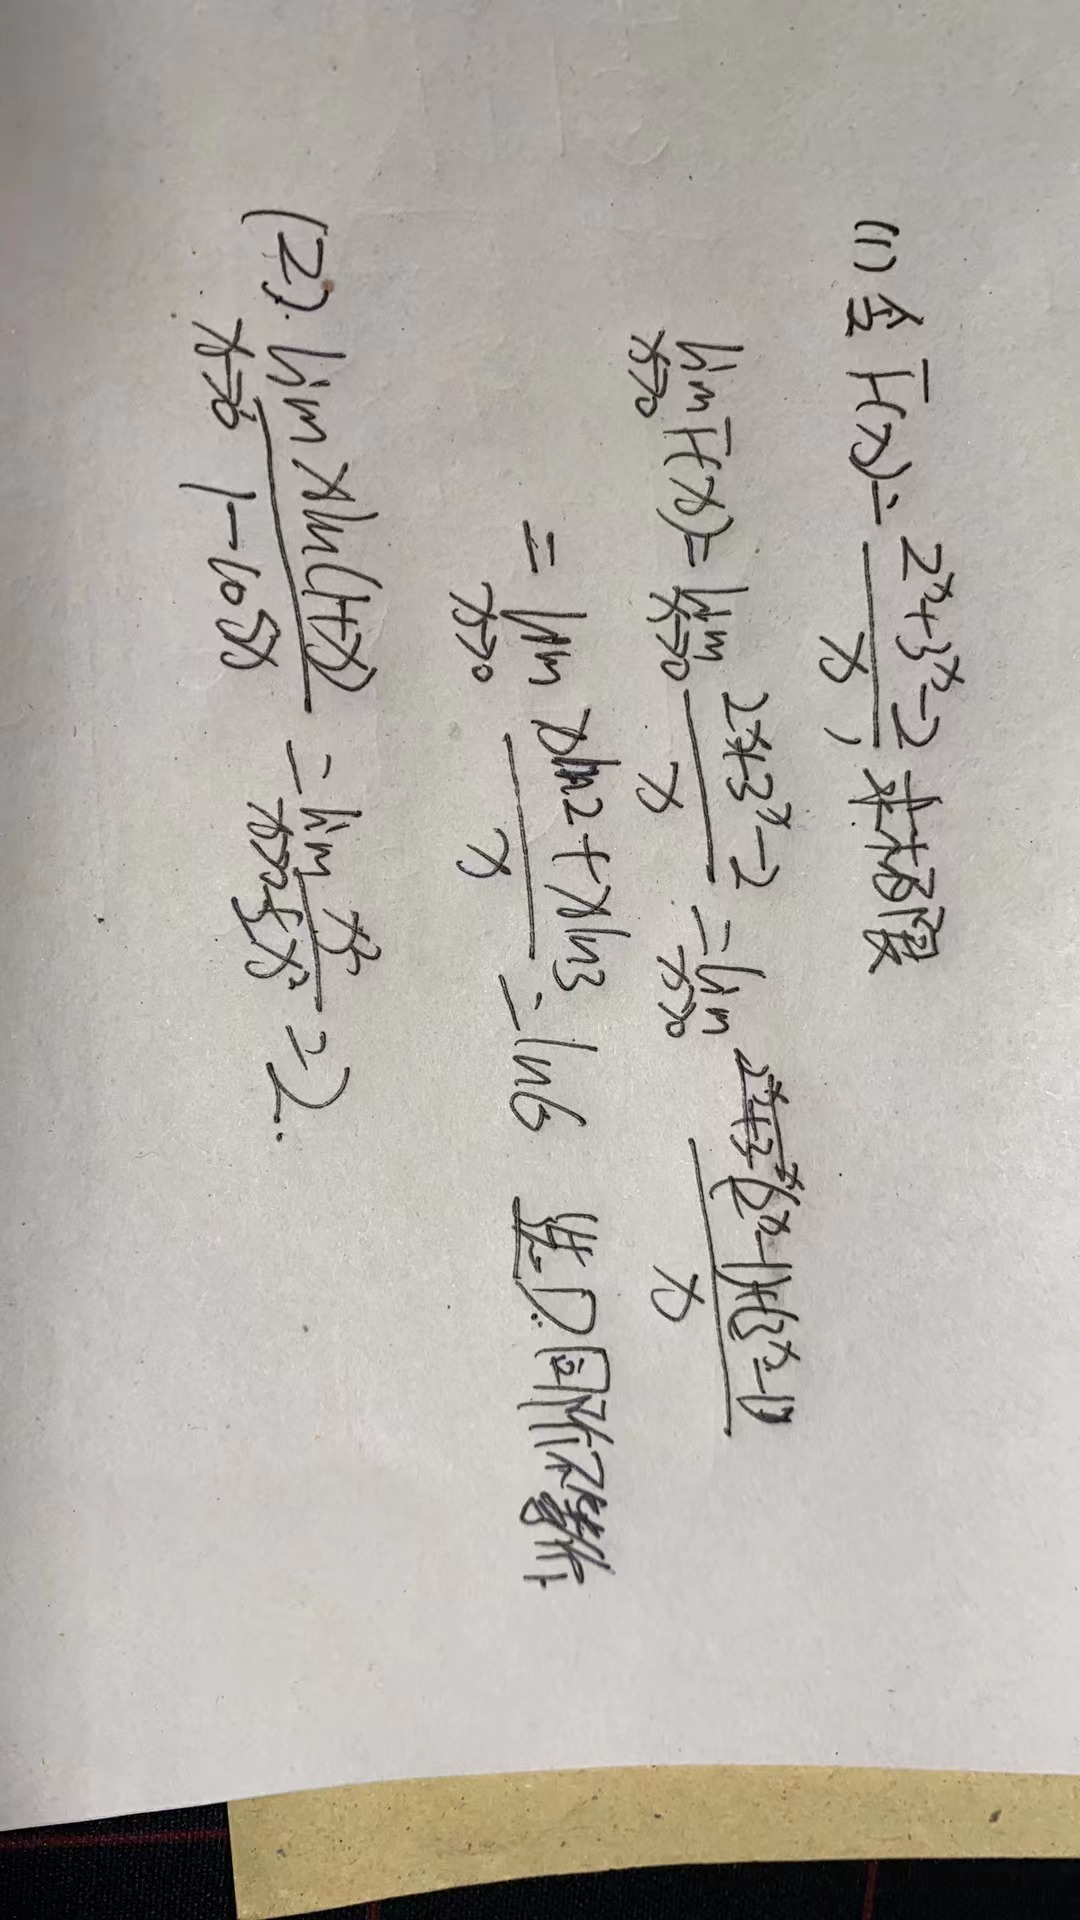 (1) 令 F(x) = (2^x+3^x-2)/x, 求极限
lim_{x→0} F(x) = lim_{x→0} (2^x+3^x-2)/x = lim_{x→0} ((2^x-1)+(3^x-1))/x
= lim_{x→0} (xln2+xln3)/x = ln6 选D 同阶不等价
(2). lim_{x→0} xln(1+x)/(1-cosx) = lim_{x→0} x²/(½x²) = 2.